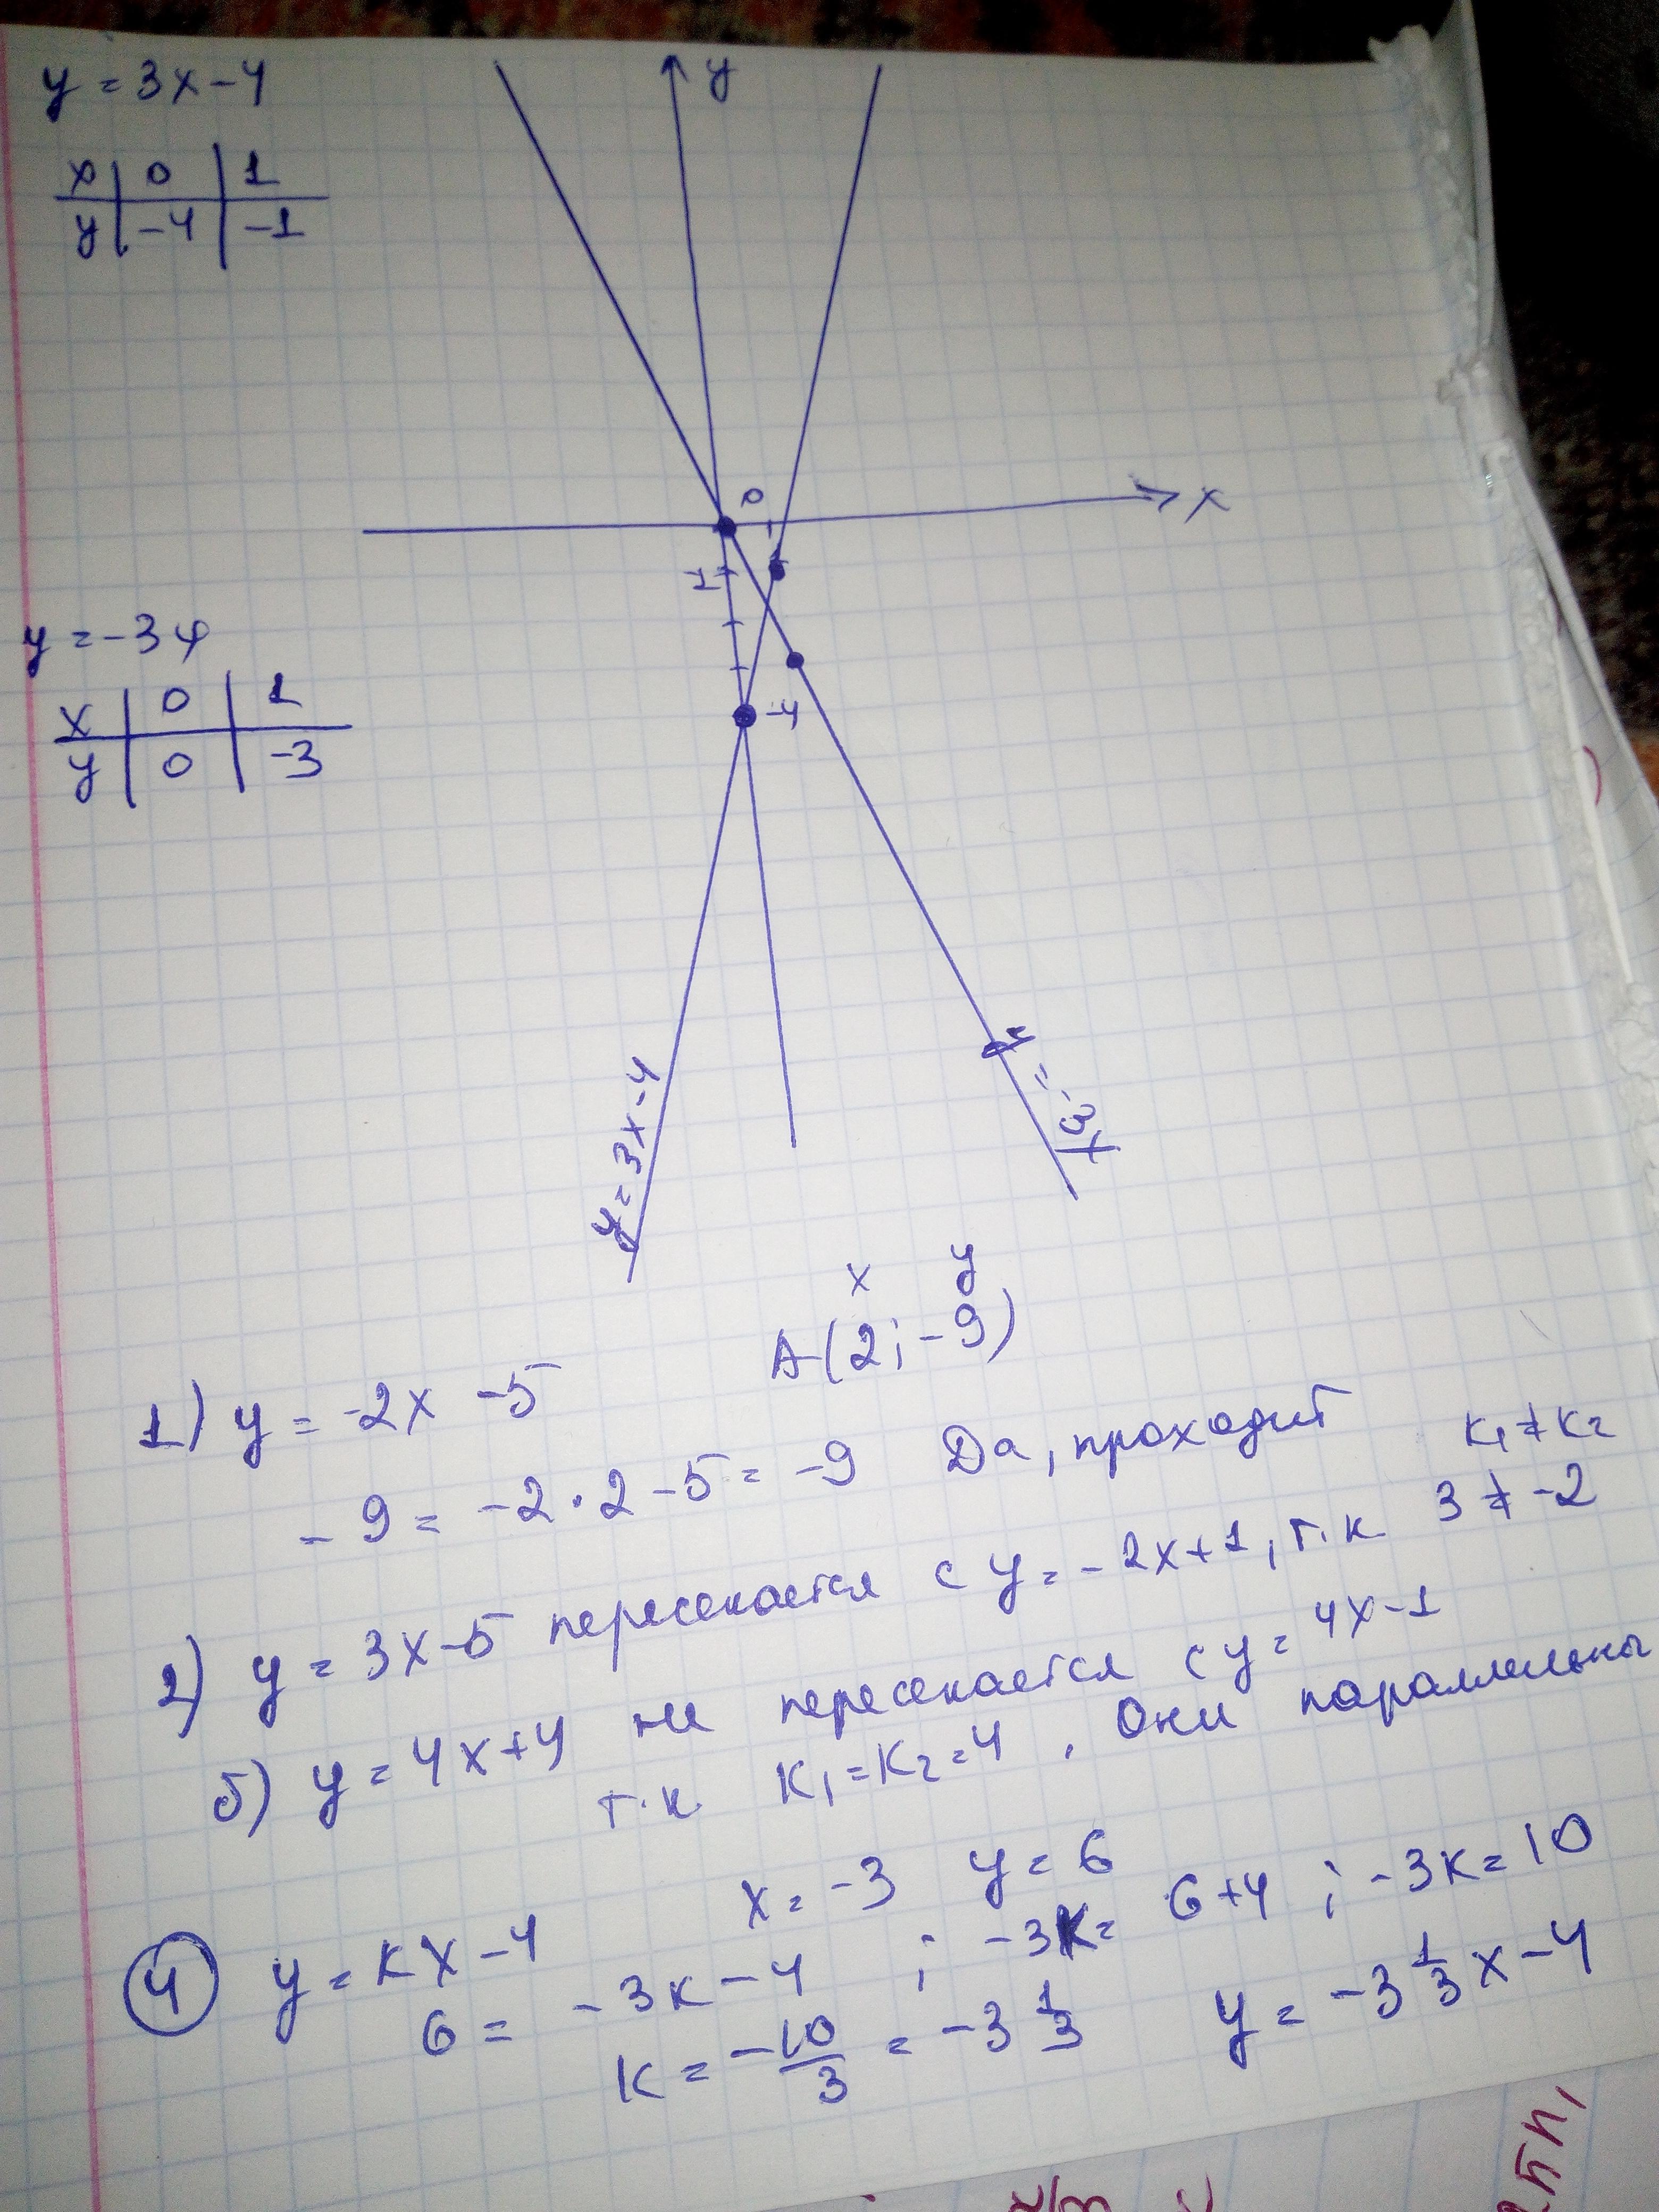 y = 3x - 4
x 0 1
y -4 -1
y
0
x
1
-4
y = -3x
x 0 1
y 0 -3
y = 3x - 4
y = -3x
x y
A(2; -9)
1) y = -2x - 5
-9 = -2 · 2 - 5 = -9 Да, проходит
k₁ ≠ k₂
2) y = 3x - 5 пересекается с y = -2x + 1, т.к 3 ≠ -2
б) y = 4x + 4 не пересекается с y = 4x - 1
т.к. k₁ = k₂ = 4, Они параллельны
x = -3 y = 6
4 y = kx - 4
6 = -3k - 4 ; -3k = 6 + 4 ; -3k = 10
k = -10/3 = -3 1/3 y = -3 1/3 x - 4